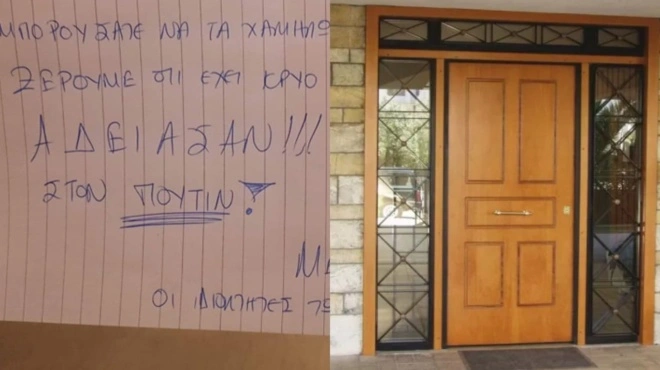 ΜΠΟΡΟΥΣΑΤΕ ΝΑ ΤΑ ΧΑΜΗΛΩ
ΞΕΡΟΥΜΕ ΟΤΙ ΕΧΕΙ ΚΡΥΟ
ΑΔΕΙΑΣΑΝ!!!
ΣΤΟΝ ΠΟΥΤΙΝ!
ΟΙ ΙΔΙΟΚΤΗΤΕΣ